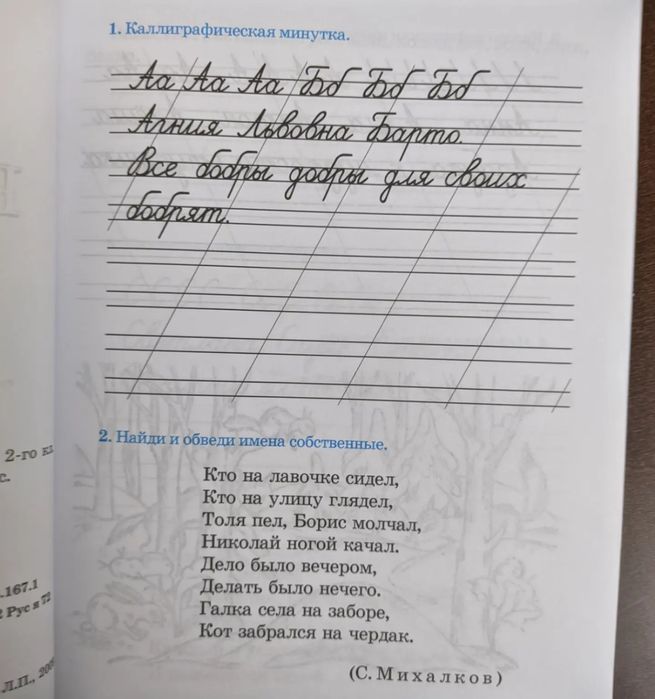 1. Каллиграфическая минутка.
Аа Аа Аа Бб Бб Бб
Агния Львовна Барто.
Все бобры добры для своих
бобрят.
2. Найди и обведи имена собственные.
Кто на лавочке сидел,
Кто на улицу глядел,
Толя пел, Борис молчал,
Николай ногой качал.
Дело было вечером,
Делать было нечего.
Галка села на заборе,
Кот забрался на чердак.
(С. Михалков)
2-го
с.
.167.1
Рус я 72
Л.П.,